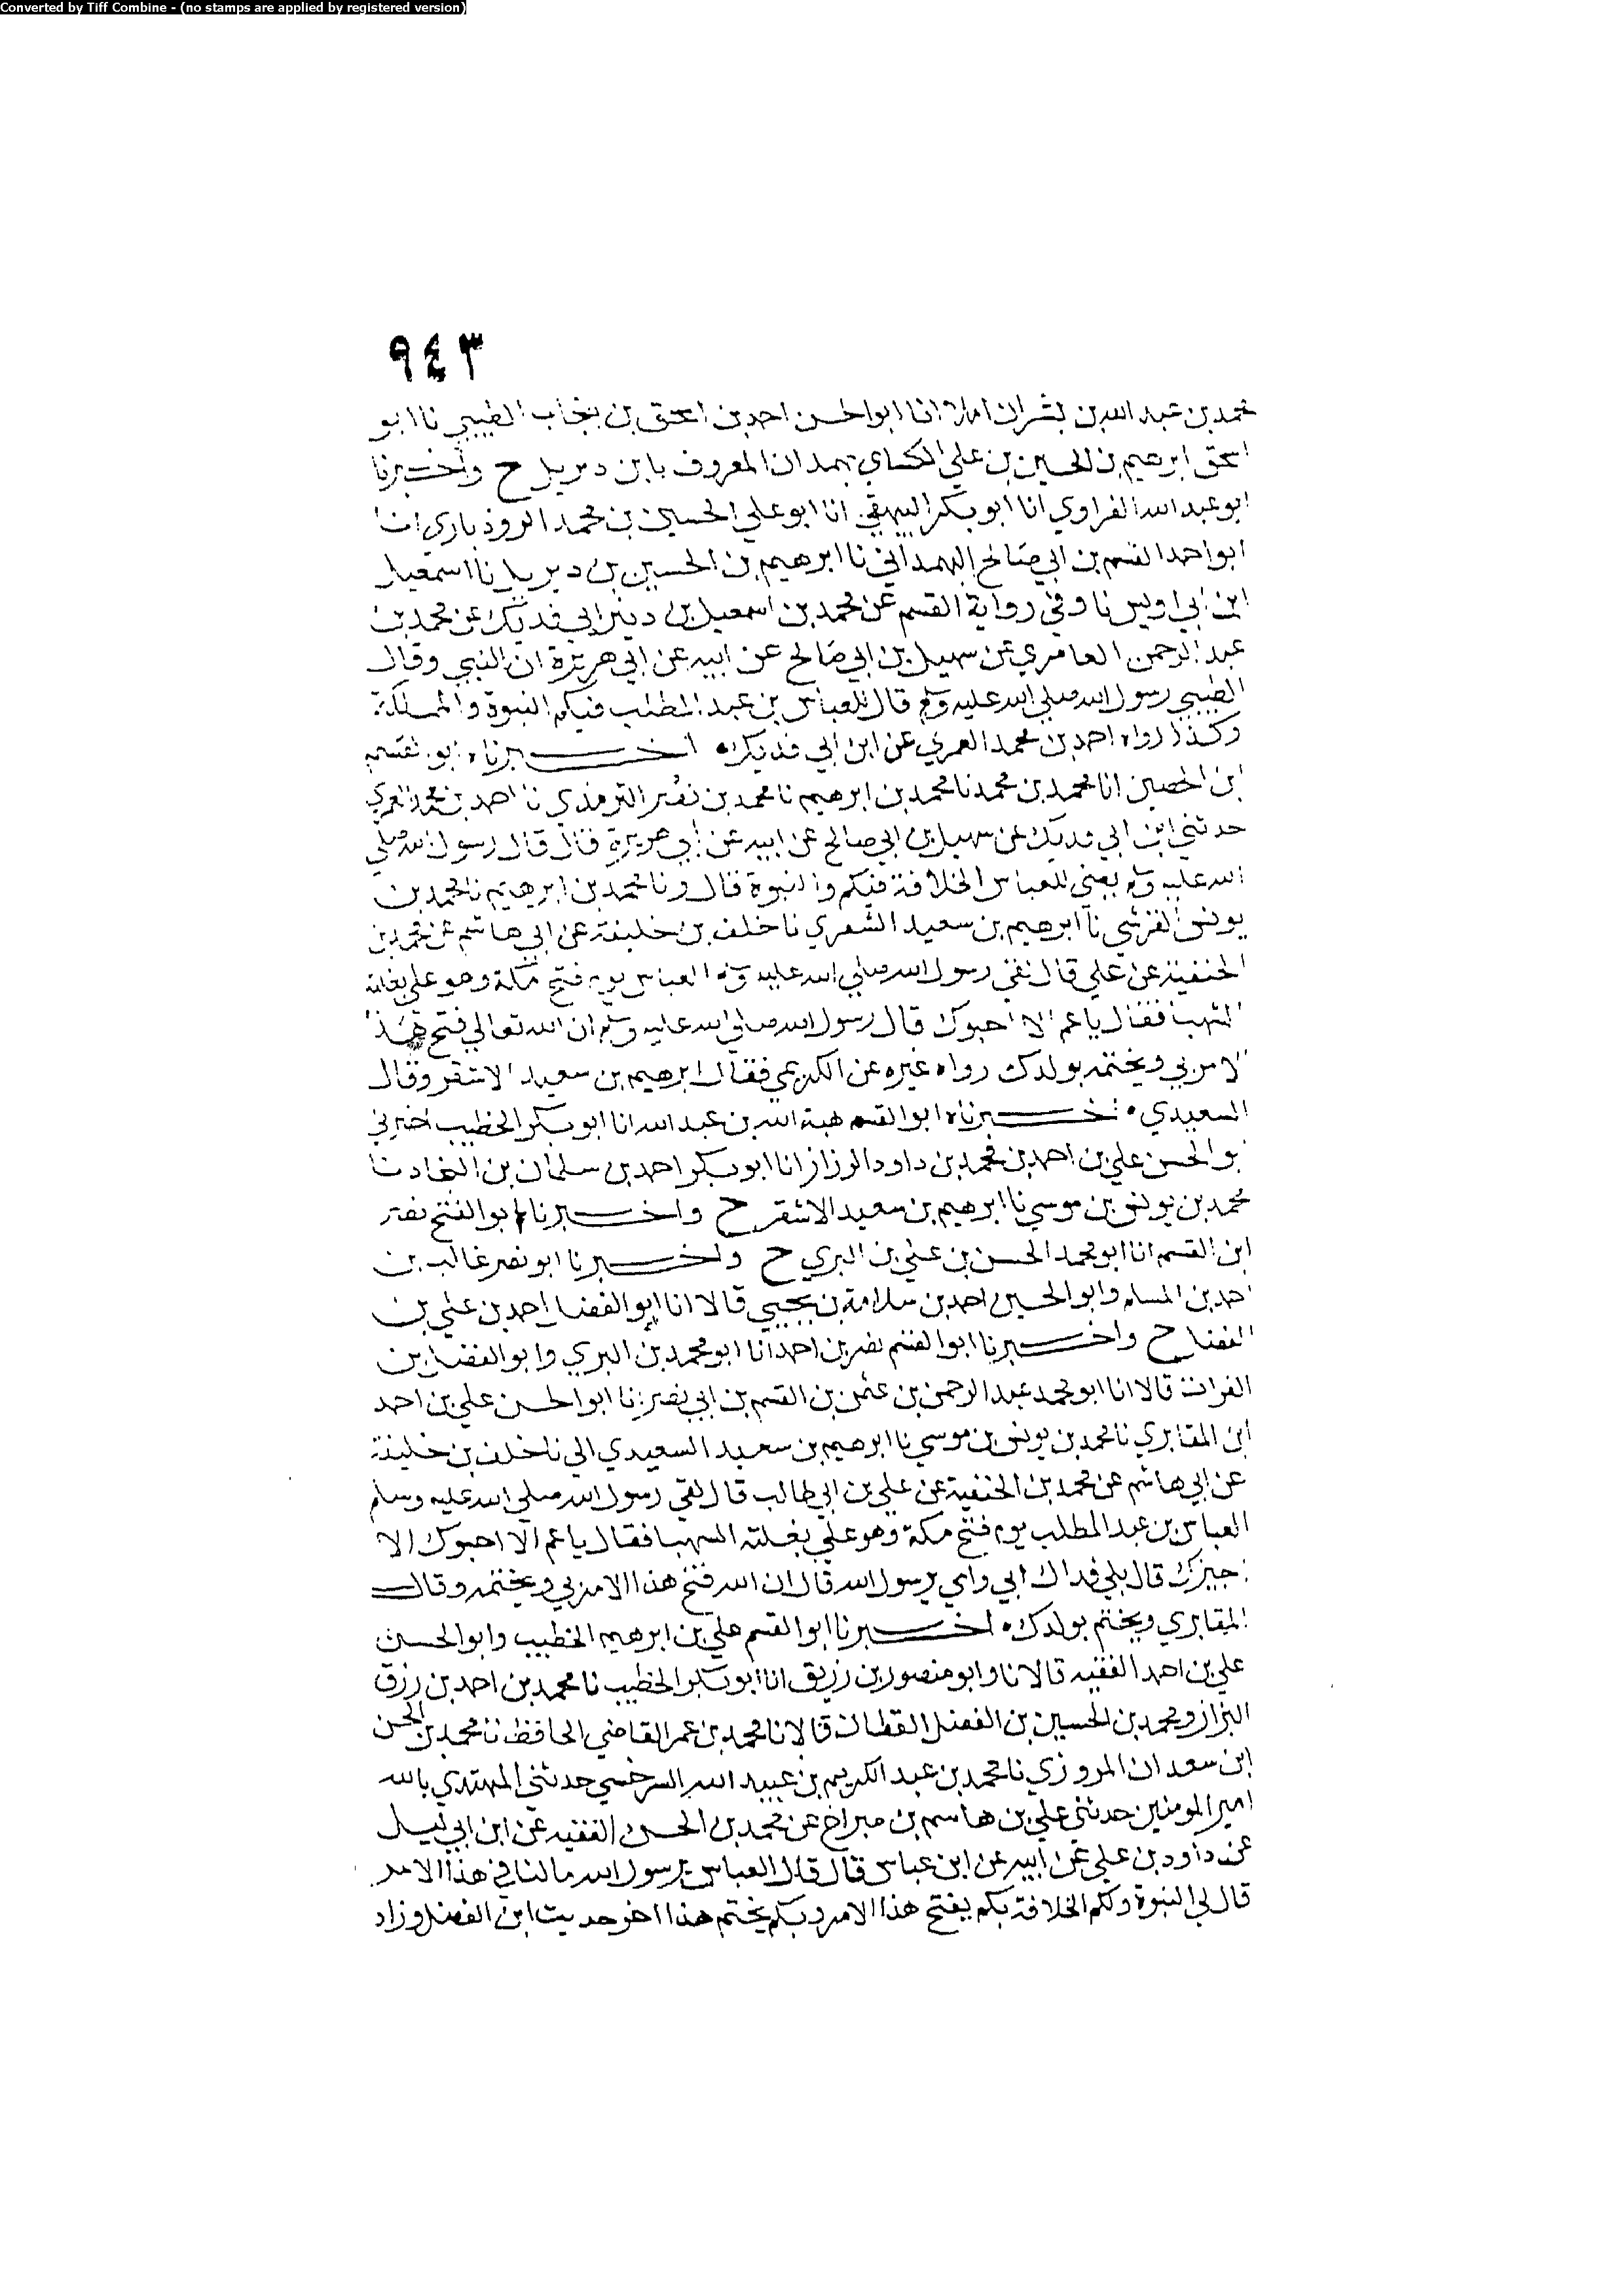 Converted by Tiff Combine - (no stamps are applied by registered version)
٩٤٣
محمد بن عبد الله بن بشران املاء انا ابو الحسن احمد بن اسحق بن بنجاب الطيبي نا ابو
اسحق ابرهيم بن الحسين بن علي الكساي بهمدان المعروف بابن ديزيل ح واخبرنا
ابو عبد الله الفراوي انا ابو بكر البيهقي انا ابو علي الحسين بن محمد الروذباري انا
ابو احمد القسم بن ابي صالح الهمداني نا ابرهيم بن الحسين بن ديزيل نا اسمعيل
ابن ابي اويس نا وفي رواية القسم عن محمد بن اسمعيل بن دينر ابي فديك عن محمد بن
عبد الرحمن العامري عن سهيل بن ابي صالح عن ابيه عن ابي هريرة ان النبي وقال
الطيبي رسول الله صلى الله عليه وسلم قال للعباس بن عبد المطلب فيكم النبوة والمملكة
وكذا رواه احمد بن محمد العمري عن ابن ابي فديك اخبرناه ابو القسم
ابن الحصين انا محمد بن محمد نا محمد بن ابرهيم نا محمد بن نصر الترمذي نا احمد بن محمد العمري
حدثني ابن ابي فديك عن سهيل بن ابي صالح عن ابيه عن ابي هريرة قال قال رسول الله صلى
الله عليه وسلم يعني للعباس الخلافة فيكم والنبوة قال ونا محمد بن ابرهيم نا محمد بن
يونس القرشي نا ابرهيم بن سعيد الشعري نا خلف بن خليفة عن ابي هاشم عن محمد بن
الحنفية عن علي قال لقي رسول الله صلى الله عليه وسلم العباس يوم فتح مكة وهو على بغلته
الشهبا فقال يا عم الا احبوك قال رسول الله صلى الله عليه وسلم ان الله تعالى فتح هذا
الامر بي ويختمه بولدك رواه غيره عن الكديمي فقال ابرهيم بن سعيد الاشقر وقال
السعيدي اخبرناه ابو القسم هبة الله بن عبد الله انا ابو بكر الخطيب اخبرني
ابو الحسن علي بن احمد بن محمد بن داود الرزاز انا ابو بكر احمد بن سلمان بن النجاد نا
محمد بن يونس بن موسي نا ابرهيم بن سعيد الاشقر ح واخبرنا ابو الفتح نصر
ابن القسم انا ابو محمد الحسن بن علي بن البري ح واخبرنا ابو نصر غالب بن
احمد بن المسلم وابو الحسين احمد بن سلامة بن يحيي قالا انا ابو الفضل احمد بن علي بن
الفضل ح واخبرنا ابو الفتح نصر بن احمد انا ابو محمد بن البري وابو الفضل بن
الفرات قالا انا ابو محمد عبد الرحمن بن عثمن بن القسم بن ابي نصر انا ابو الحسن علي بن احمد
ابن المقابري نا محمد بن يونس بن موسي نا ابرهيم بن سعيد السعيدي الي نا خلف بن خليفة
عن ابي هاشم عن محمد بن الحنفية عن علي بن ابي طالب قال لقي رسول الله صلى الله عليه وسلم
العباس بن عبد المطلب يوم فتح مكة وهو على بغلته الشهبا فقال يا عم الا احبوك الا
اجيزك قال بلى فداك ابي وامي يرسول الله قال ان الله فتح هذا الامر بي ويختمه وقال
المقابري ويختم بولدك اخبرنا ابو القسم علي بن ابرهيم الخطيب وابو الحسن
علي بن احمد الفقيه قالا نا وابو منصور بن زريق انا ابو بكر الخطيب نا محمد بن احمد بن رزق
البزاز ومحمد بن الحسين بن الفضل القطان قالا نا محمد بن عمر القاضي الحافظ نا محمد بن الحسن
ابن سعدان المروزي نا محمد بن عبد الكريم بن عبيد الله السرخسي حدثني المهتدي بالله
امير المومنين حدثني علي بن هاشم بن طبراخ عن محمد بن الحسن الفقيه عن ابن ابي ليلى
عن داود بن علي عن ابيه عن ابن عباس قال قال العباس يرسول الله ما لنا في هذا الامر
قال لي النبوة ولكم الخلافة بكم يفتح هذا الامر وبكم يختم هذا اخر حديث ابن الفضل وزاد